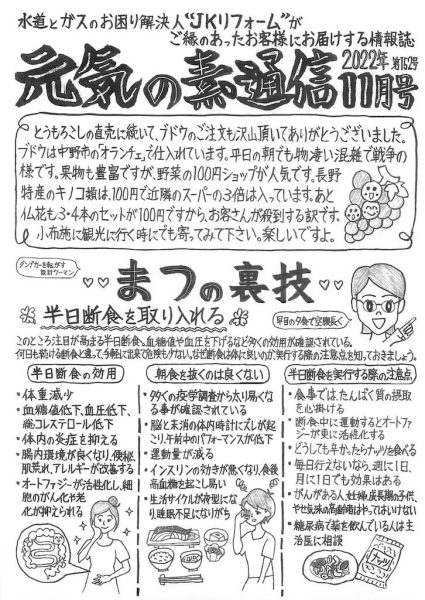 水道とガスのお困り解決人“JKリフォーム”が
ご縁のあったお客様にお届けする情報誌
元気の素通信
2022年 第162号
11月号
とうもろこしの直売に続いて、ブドウのご注文も沢山頂いてありがとうございました。
ブドウは中野市の「オランチェ」で仕入れています。平日の朝でも物凄い混雑で戦争の
様です。果物も豊富ですが、野菜の100円ショップが人気です。長野
特産のキノコ類は、100円で近隣のスーパーの3倍は入っています。あと
仏花も3・4本のセットが100円ですから、お客さんが殺到する訳です。
小布施に観光に行く時にでも寄ってみて下さい。楽しいですよ。
ダンプカーを転がす
設計ウーマン
まつの裏技
半日断食を取り入れる
早目の夕食で空腹長く
このところ注目が高まる半日断食。血糖値や血圧を下げるなど多くの効用が確認されている。
何日も続ける断食と違って、手軽に出来て危険も少ない。なぜ断食は体に良いのか、実行する際の注意点を知っておきましょう。
半日断食の効用
・体重減少
・血糖値低下、血圧低下、
総コレステロール低下
・体内の炎症を抑える
・腸内環境が良くなり、便秘、
肌荒れ、アレルギーが改善する
・オートファジーが活性化し、細
胞のがん化や老
化が抑えられる
朝食を抜くのは良くない
・多くの疫学調査から太り易くな
る事が確認されている
・脳と末消の体内時計にズレが起
こり、午前中のパフォーマンスが低下
・運動量が減る
・インスリンの効きが悪くなり、食後
高血糖を起こし易い
・生活サイクルが夜型にな
り睡眠不足になりがち
半日断食を実行する際の注意点
・食事では、たんぱく質の摂取
を心掛ける
・断食中に運動するとオートファ
ジーが更に活性化する
・どうしても辛かったらナッツを食べる
・毎日行えないなら、週に1日、
月に1日でも効果はある
・がんがある人、妊婦、成長期の子供、
やせ気味の高齢者はやってはいけない
・糖尿病で薬を飲んでいる人は主
治医に相談
ナッツ